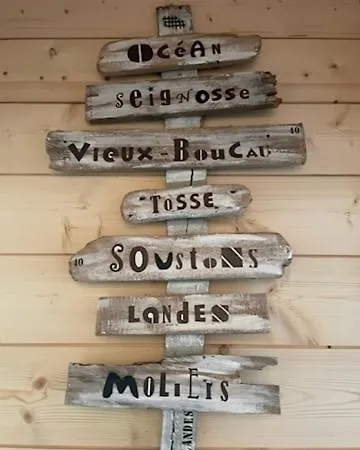 OCéAN
SeigNosse
40
Vieux-BouCau
TOSSE
40
SOUstoNS
LaNdEN
MOLiETs
LANDES